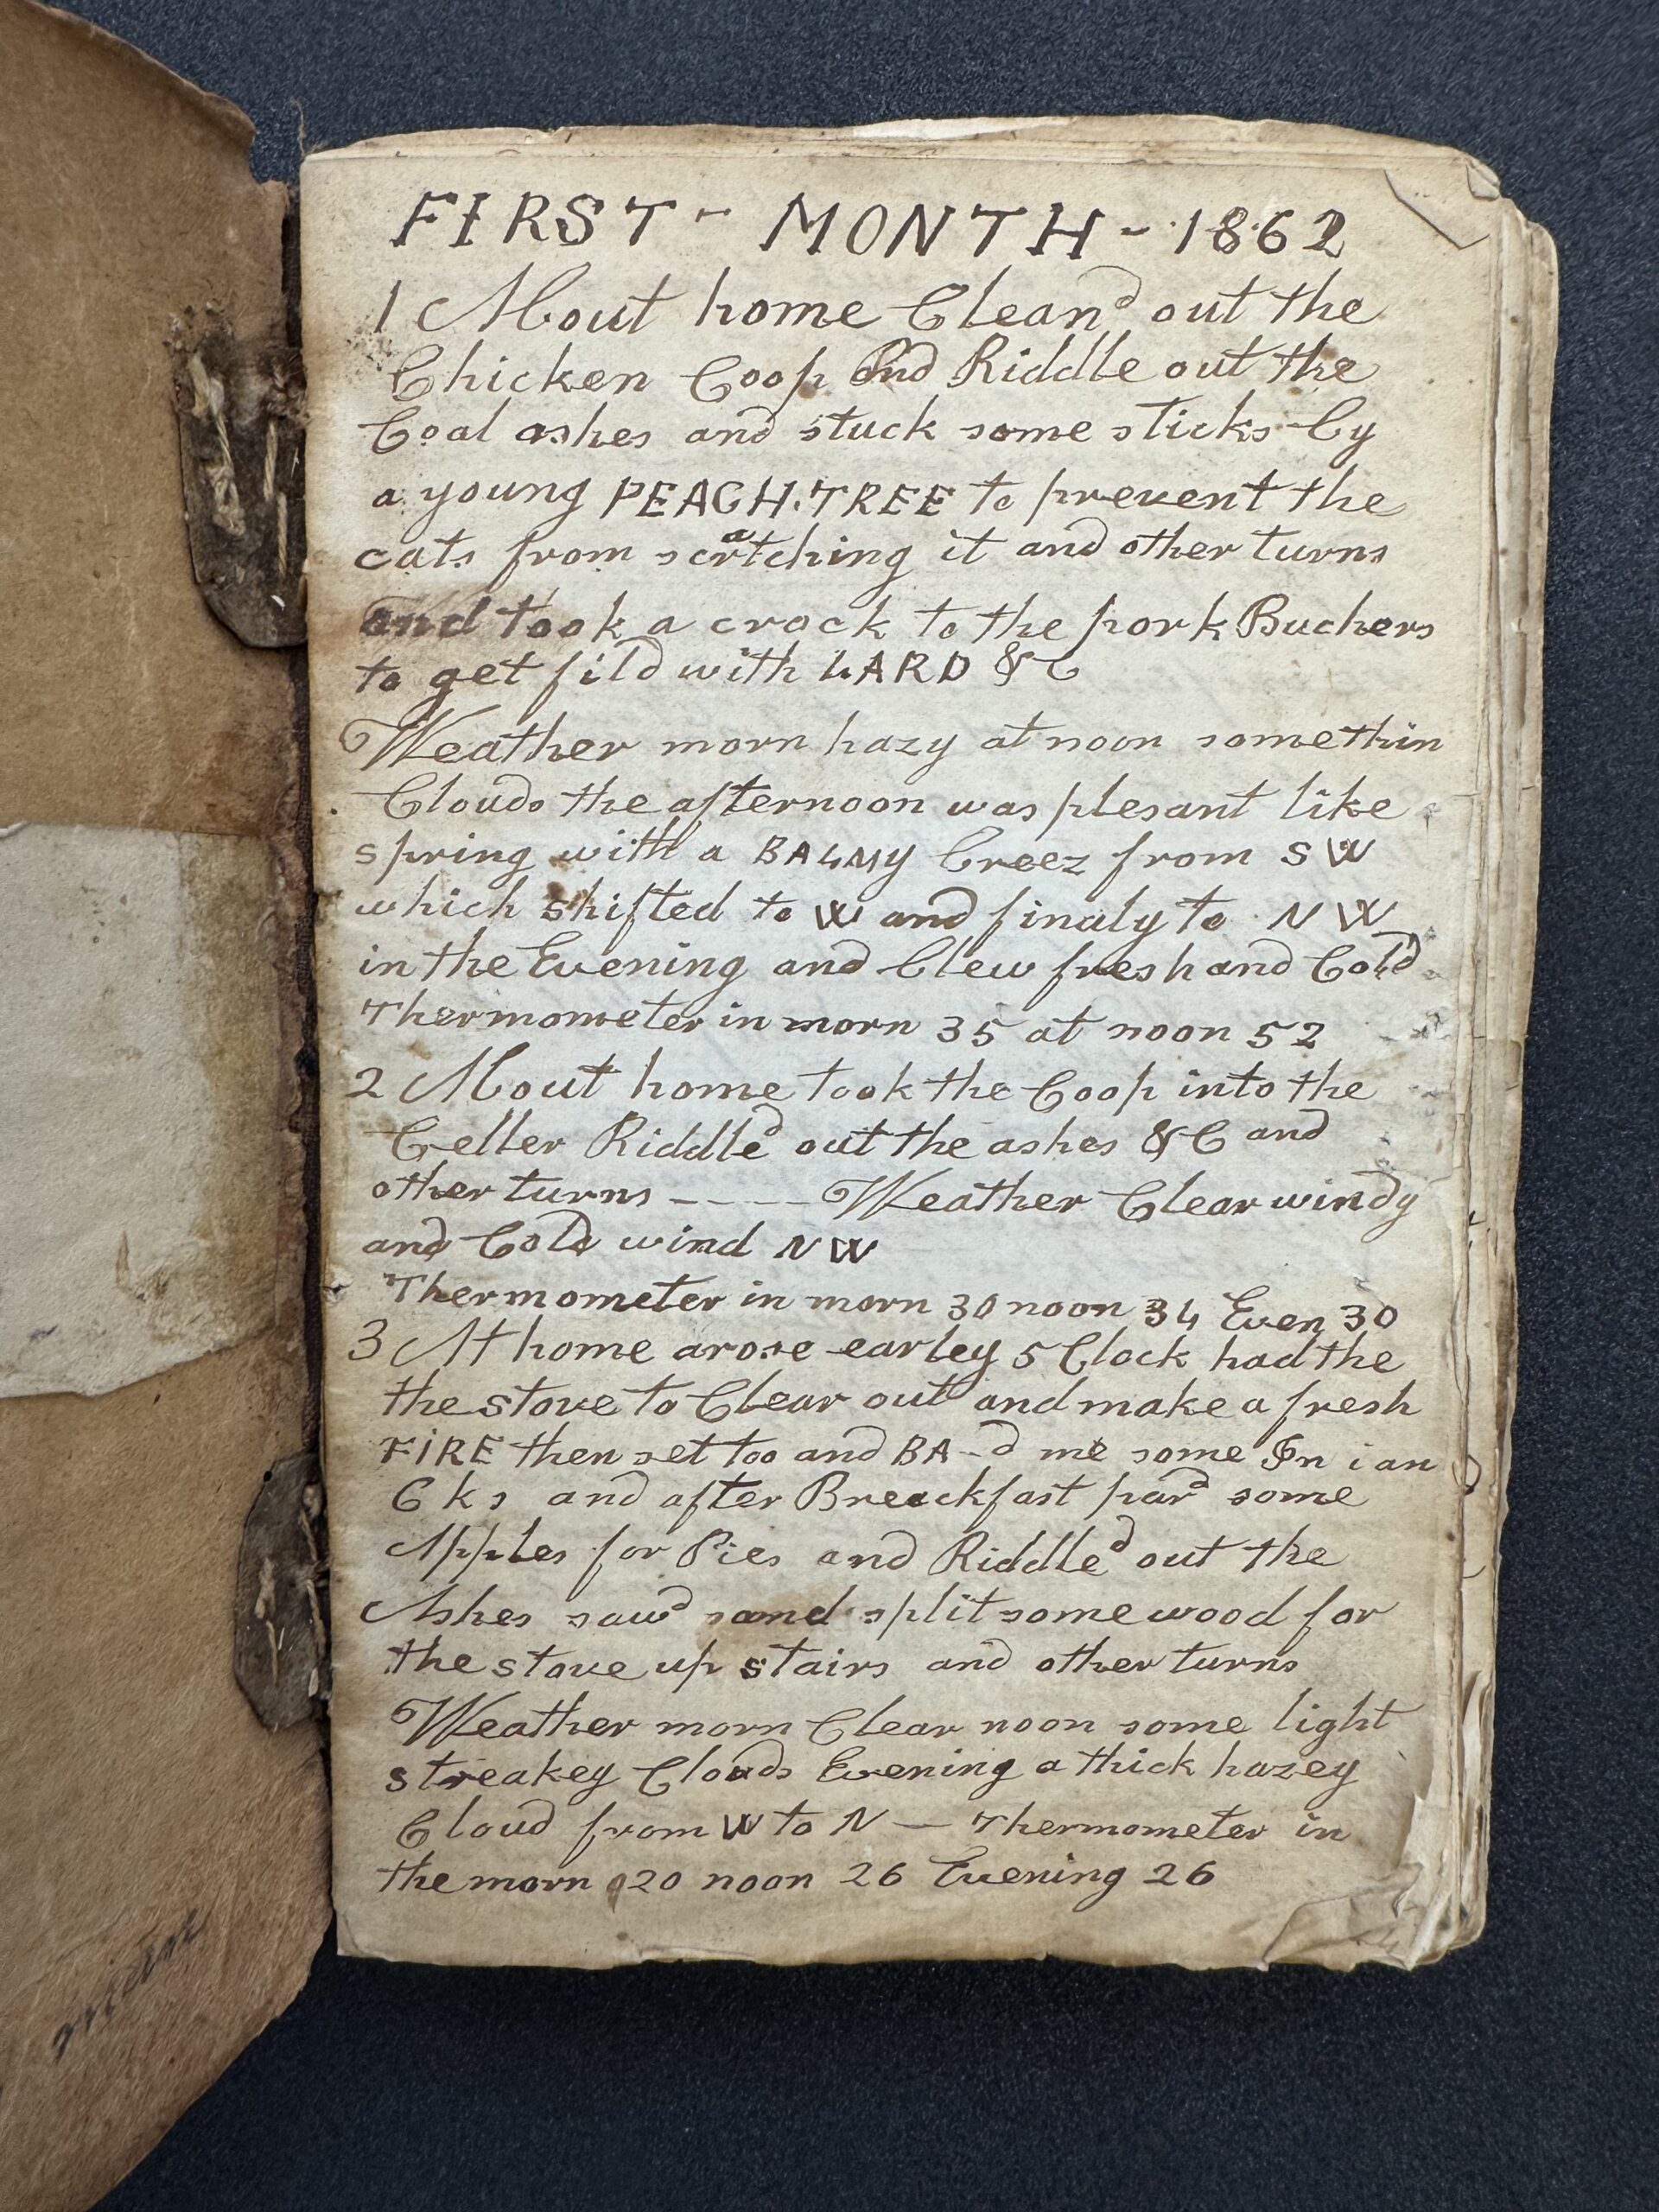 FIRST - MONTH - 1862
1 About home Clean'd out the
Chicken Coop and Riddle out the
Coal ashes and stuck some sticks by
a young PEACH.TREE to prevent the
cats from scratching it and other turns
and took a crock to the pork Buchers
to get fild with LARD &C
Weather morn hazy at noon some thin
Clouds the afternoon was plesant like
spring with a BALMY breez from SW
which shifted to W and finaly to NW
in the Evening and blew fresh and Cold
Thermometer in morn 35 at noon 52
2 About home took the Coop into the
Celler Riddle'd out the ashes &C and
other turns - - - - Weather Clear windy
and Cold wind NW
Thermometer in morn 30 noon 34 Even 30
3 At home arose earley 5 Clock had the
the stove to Clear out and make a fresh
FIRE then set too and BA-d me some In ian
C k s and after Breackfast par'd some
Apples for Pies and Riddle'd out the
Ashes saw'd and split some wood for
the stove up stairs and other turns
Weather morn Clear noon some light
streakey Clouds Evening a thick hazey
Cloud from W to N — Thermometer in
the morn 20 noon 26 Evening 26